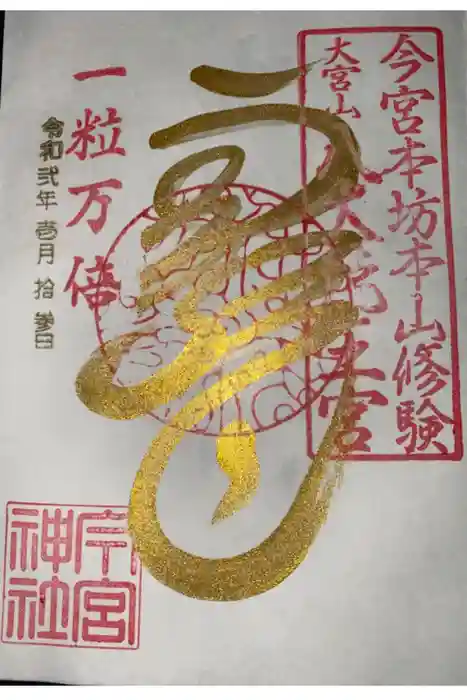 今宮本坊本山修験
大宮山八大龍王宮
一粒万倍
令和弐年壱月拾参日
今宮
神社